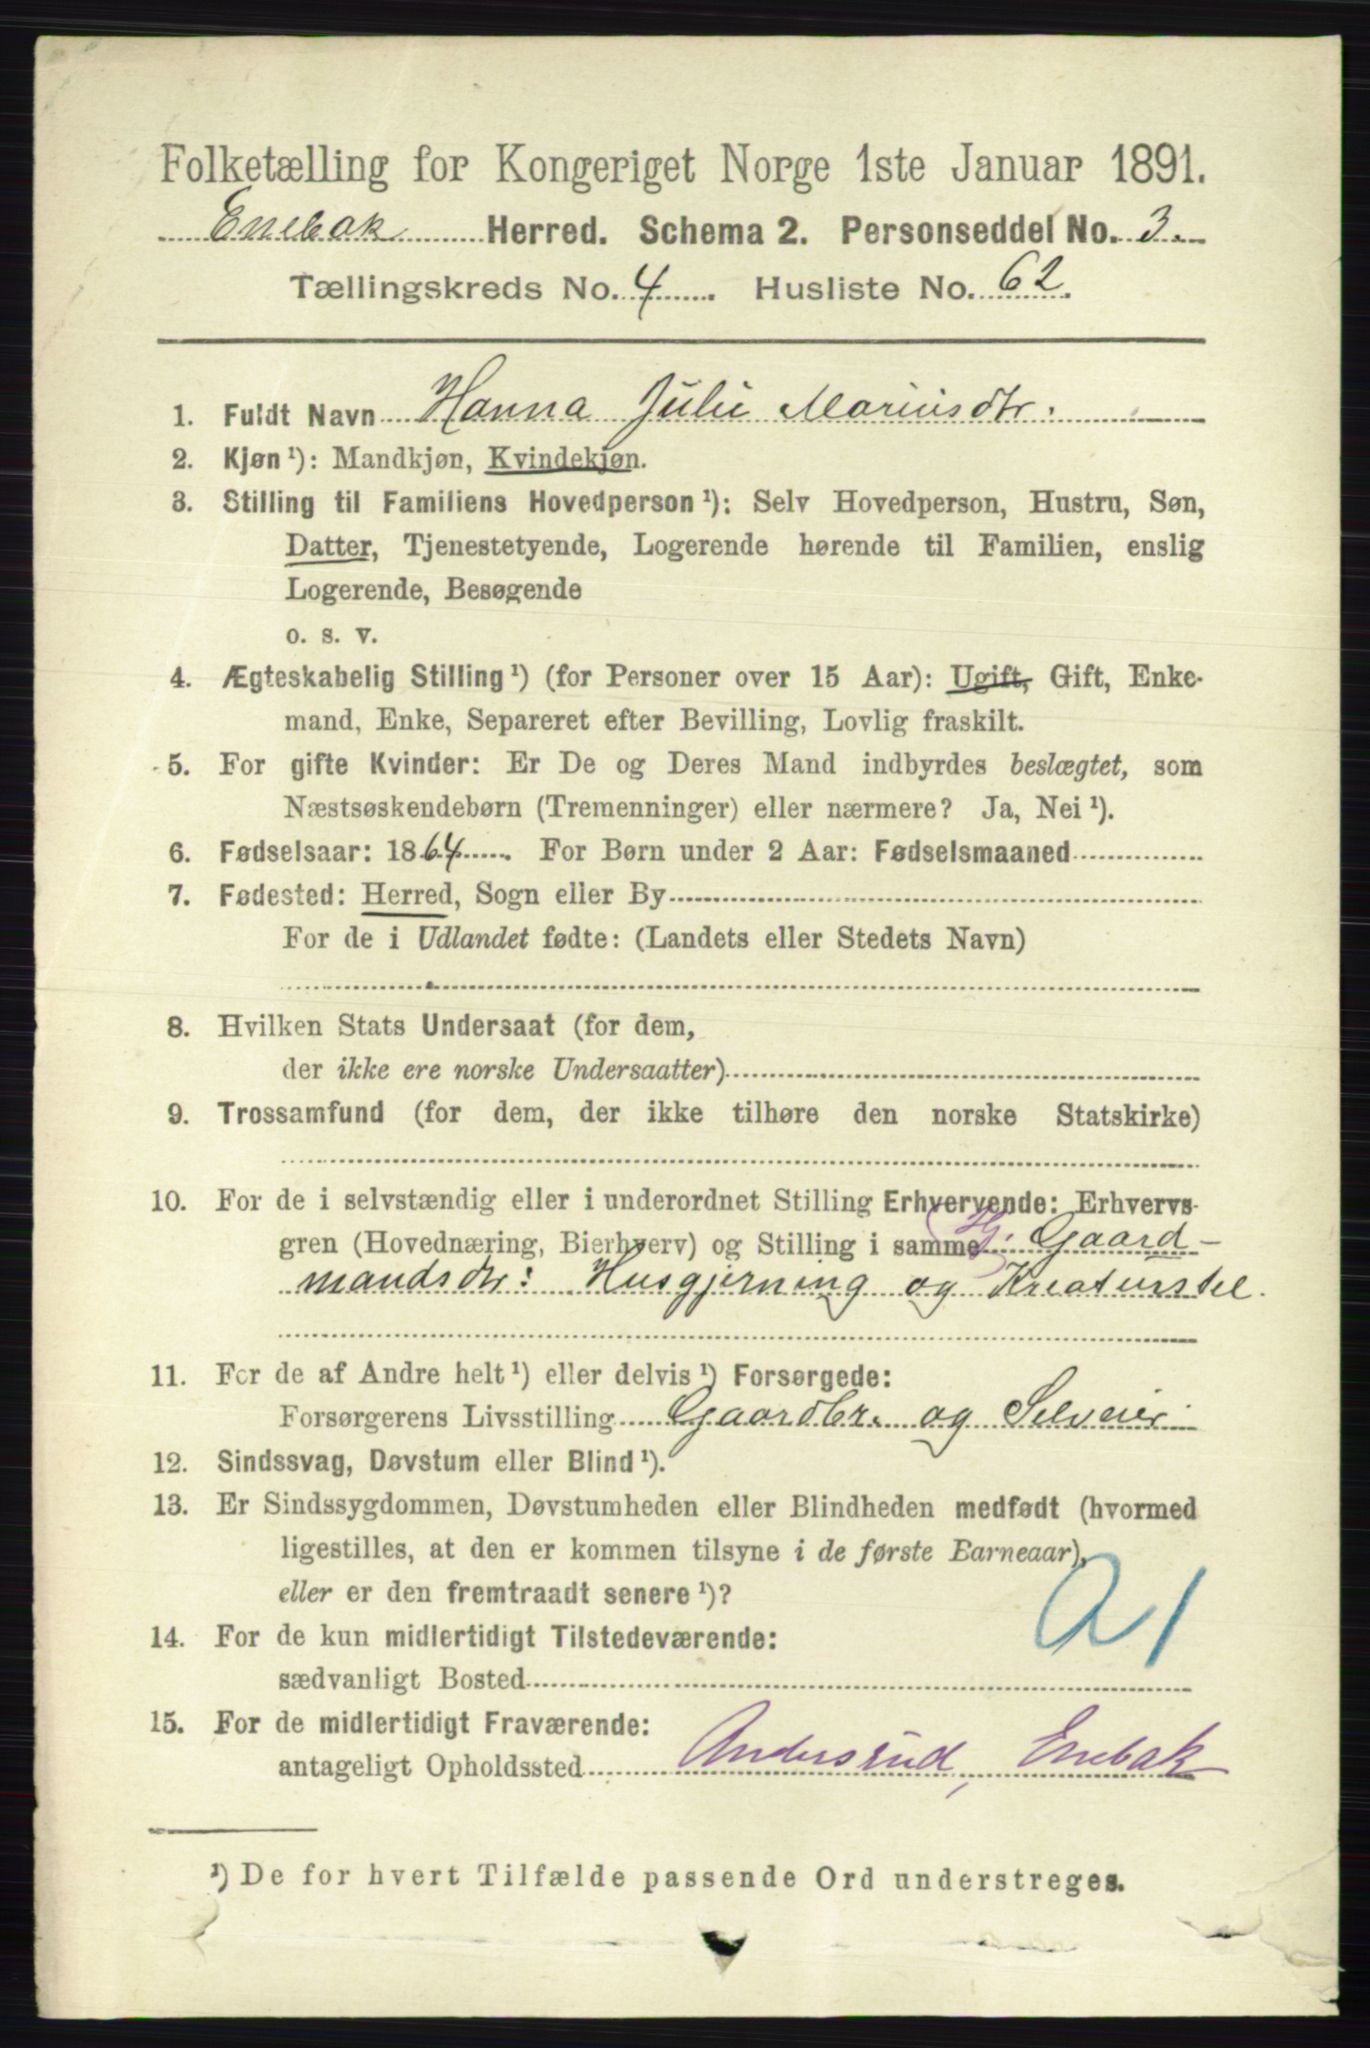 Folketælling for Kongeriget Norge 1ste Januar 1891.
Enebak Herred. Schema 2. Personseddel No. 3.
Tællingskreds No. 4. Husliste No. 62.
1. Fuldt Navn Hanna Julie Mariusdtr.
2. Kjøn¹): Mandkjøn, Kvindekjøn.
3. Stilling til Familiens Hovedperson¹): Selv Hovedperson, Hustru, Søn,
Datter, Tjenestetyende, Logerende hørende til Familien, enslig
Logerende, Besøgende
o. s. v.
4. Ægteskabelig Stilling¹) (for Personer over 15 Aar): Ugift, Gift, Enke-
mand, Enke, Separeret efter Bevilling, Lovlig fraskilt.
5. For gifte Kvinder: Er De og Deres Mand indbyrdes beslægtet, som
Næstsøskendebørn (Tremenninger) eller nærmere? Ja, Nei¹).
6. Fødselsaar: 1864. For Børn under 2 Aar: Fødselsmaaned
7. Fødested: Herred, Sogn eller By
For de i Udlandet fødte: (Landets eller Stedets Navn)
8. Hvilken Stats Undersaat (for dem,
der ikke ere norske Undersaatter)
9. Trossamfund (for dem, der ikke tilhøre den norske Statskirke)
10. For de i selvstændig eller i underordnet Stilling Erhvervende: Erhvervs-
gren (Hovednæring, Bierhverv) og Stilling i samme Gaard-
mandsdtr: Husgjerning og Kreaturstel.
11. For de af Andre helt¹) eller delvis¹) Forsørgede:
Forsørgerens Livsstilling Gaardbr. og Selveier
12. Sindssvag, Døvstum eller Blind¹).
13. Er Sindssygdommen, Døvstumheden eller Blindheden medfødt (hvormed
ligestilles, at den er kommen tilsyne i de første Barneaar),
eller er den fremtraadt senere¹)?
14. For de kun midlertidigt Tilstedeværende:
sædvanligt Bosted
15. For de midlertidigt Fraværende:
antageligt Opholdssted Andersrud, Enebak
¹) De for hvert Tilfælde passende Ord understreges.